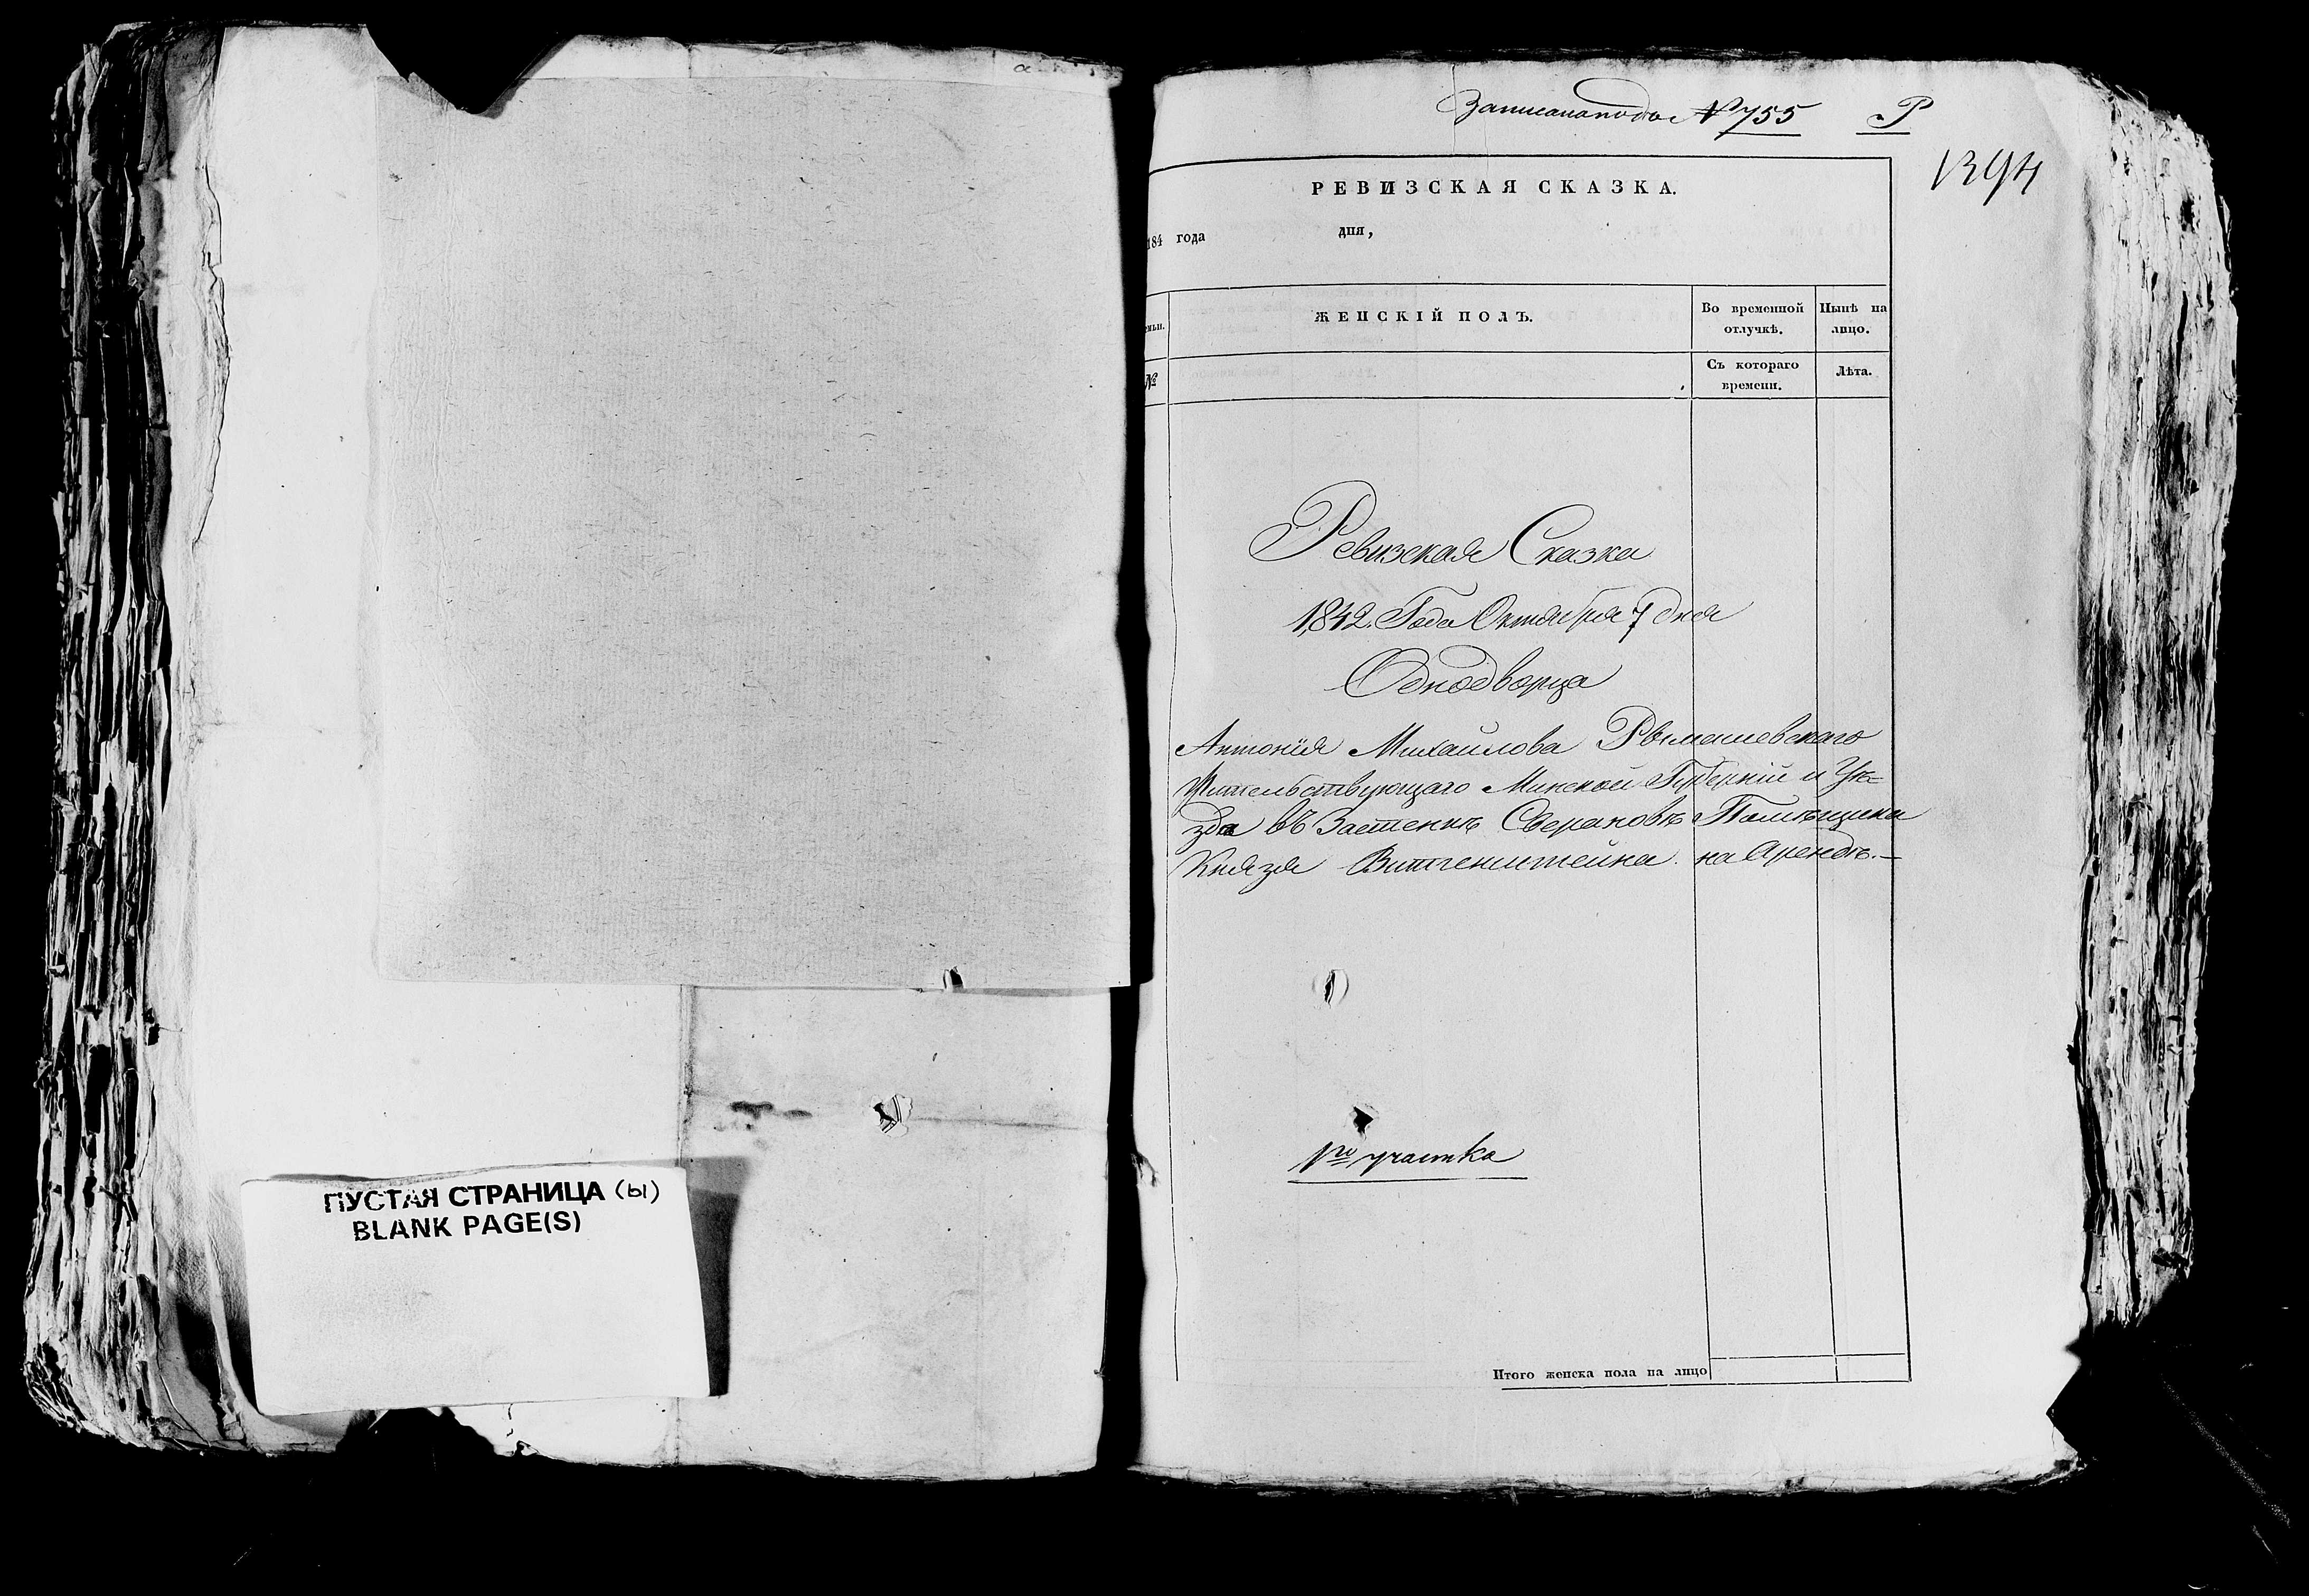 Записана подъ № 755 Р
1394
РЕВИЗСКАЯ СКАЗКА.
184 года дня,
ЖЕНСКІЙ ПОЛЪ.
Во временной отлучкѣ.
Нынѣ на лицо.
№
Съ котораго времени.
Лѣта.
Ревизская Сказка
1842. Года Октября 7 дня
Однодворца
Антонія Михайлова Рымашевскаго
Жительствующаго Минской Губерніи и Уѣ=
зда въ Застенкѣ Помѣщика
Князя Витгенштейна на Арендѣ.—
1го участка
Итого женска пола на лицо
ПУСТАЯ СТРАНИЦА (Ы)
BLANK PAGE(S)